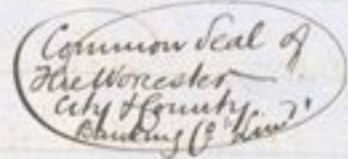 Common Seal of
The Worcester
City & County
Banking Co Limd